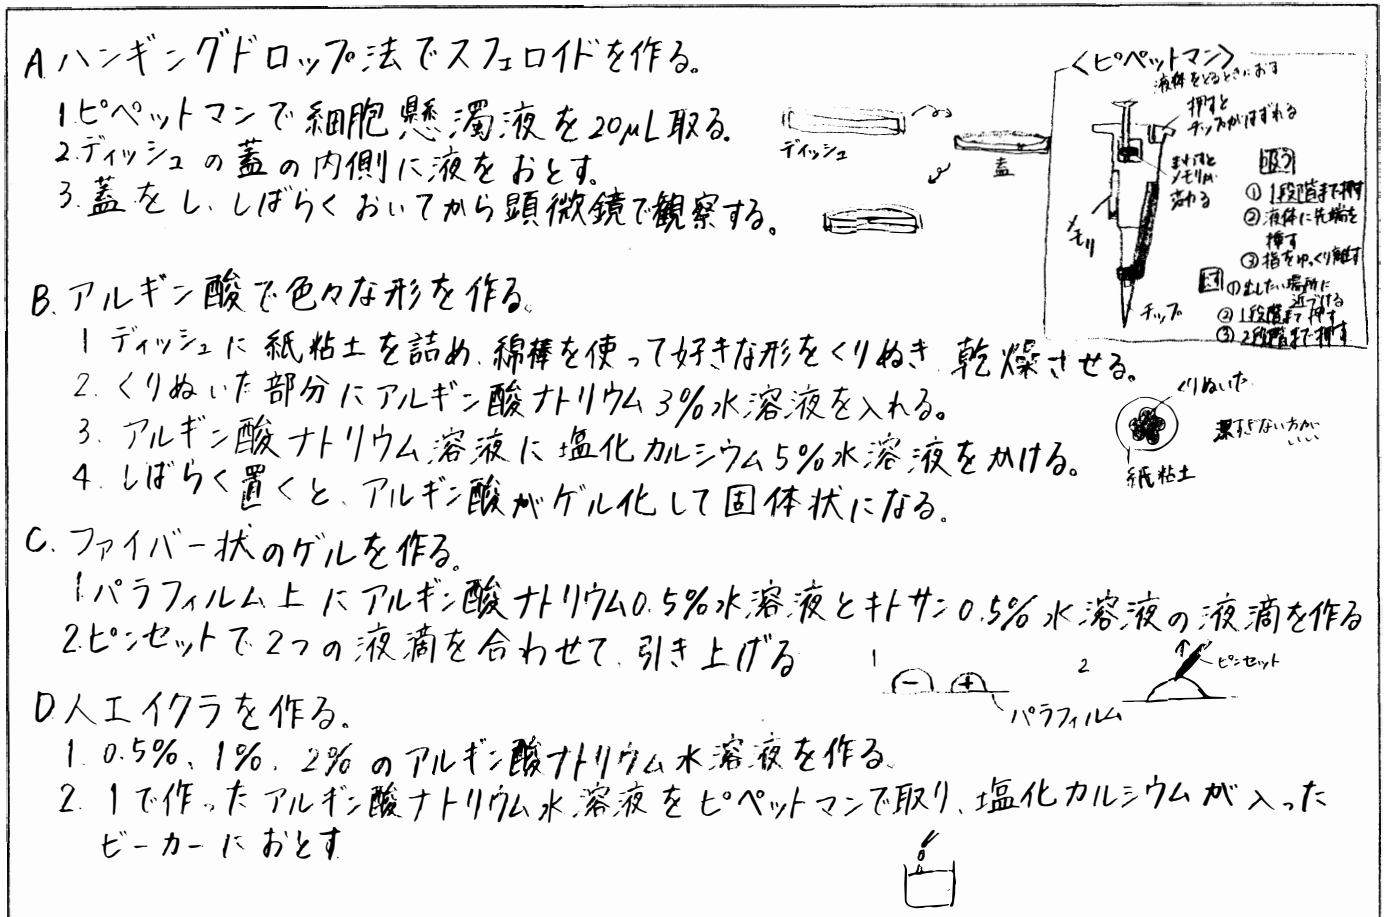 A.ハンギングドロップ法でスフェロイドを作る。
1.ピペットマンで細胞懸濁液を20μL取る。
2.ディッシュの蓋の内側に液をおとす。
3.蓋をし、しばらくおいてから顕微鏡で観察する。
ディッシュ
蓋
〈ピペットマン〉
液体をとるときにおす
押すと
チップがはずれる
まわすと
メモリが
変わる
メモリ
チップ
吸う
① 1段階まで押す
② 液体に先端を
挿す
③ 指をゆっくり離す
出す
① 出したい場所に
近づける
② 1段階まで押す
③ 2段階まで押す
B.アルギン酸で色々な形を作る。
1 ディッシュに紙粘土を詰め、綿棒を使って好きな形をくりぬき、乾燥させる。
2.くりぬいた部分にアルギン酸ナトリウム3%水溶液を入れる。
3.アルギン酸ナトリウム溶液に塩化カルシウム5%水溶液をかける。
4.しばらく置くと、アルギン酸がゲル化して固体状になる。
くりぬいた
深すぎない方が
いい
紙粘土
C.ファイバー状のゲルを作る。
1.パラフィルム上にアルギン酸ナトリウム0.5%水溶液とキトサン0.5%水溶液の液滴を作る
2.ピンセットで2つの液滴を合わせて、引き上げる
1
−
+
パラフィルム
2
ピンセット
D.人工イクラを作る。
1. 0.5%、1%、2%のアルギン酸ナトリウム水溶液を作る。
2. 1で作ったアルギン酸ナトリウム水溶液をピペットマンで取り、塩化カルシウムが入った
ビーカーにおとす